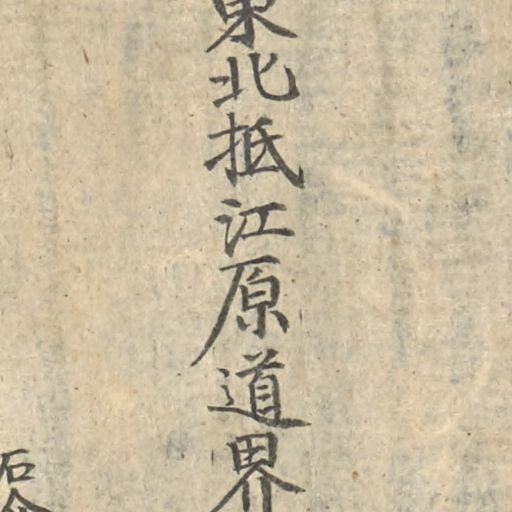 東北抵江原道界
石